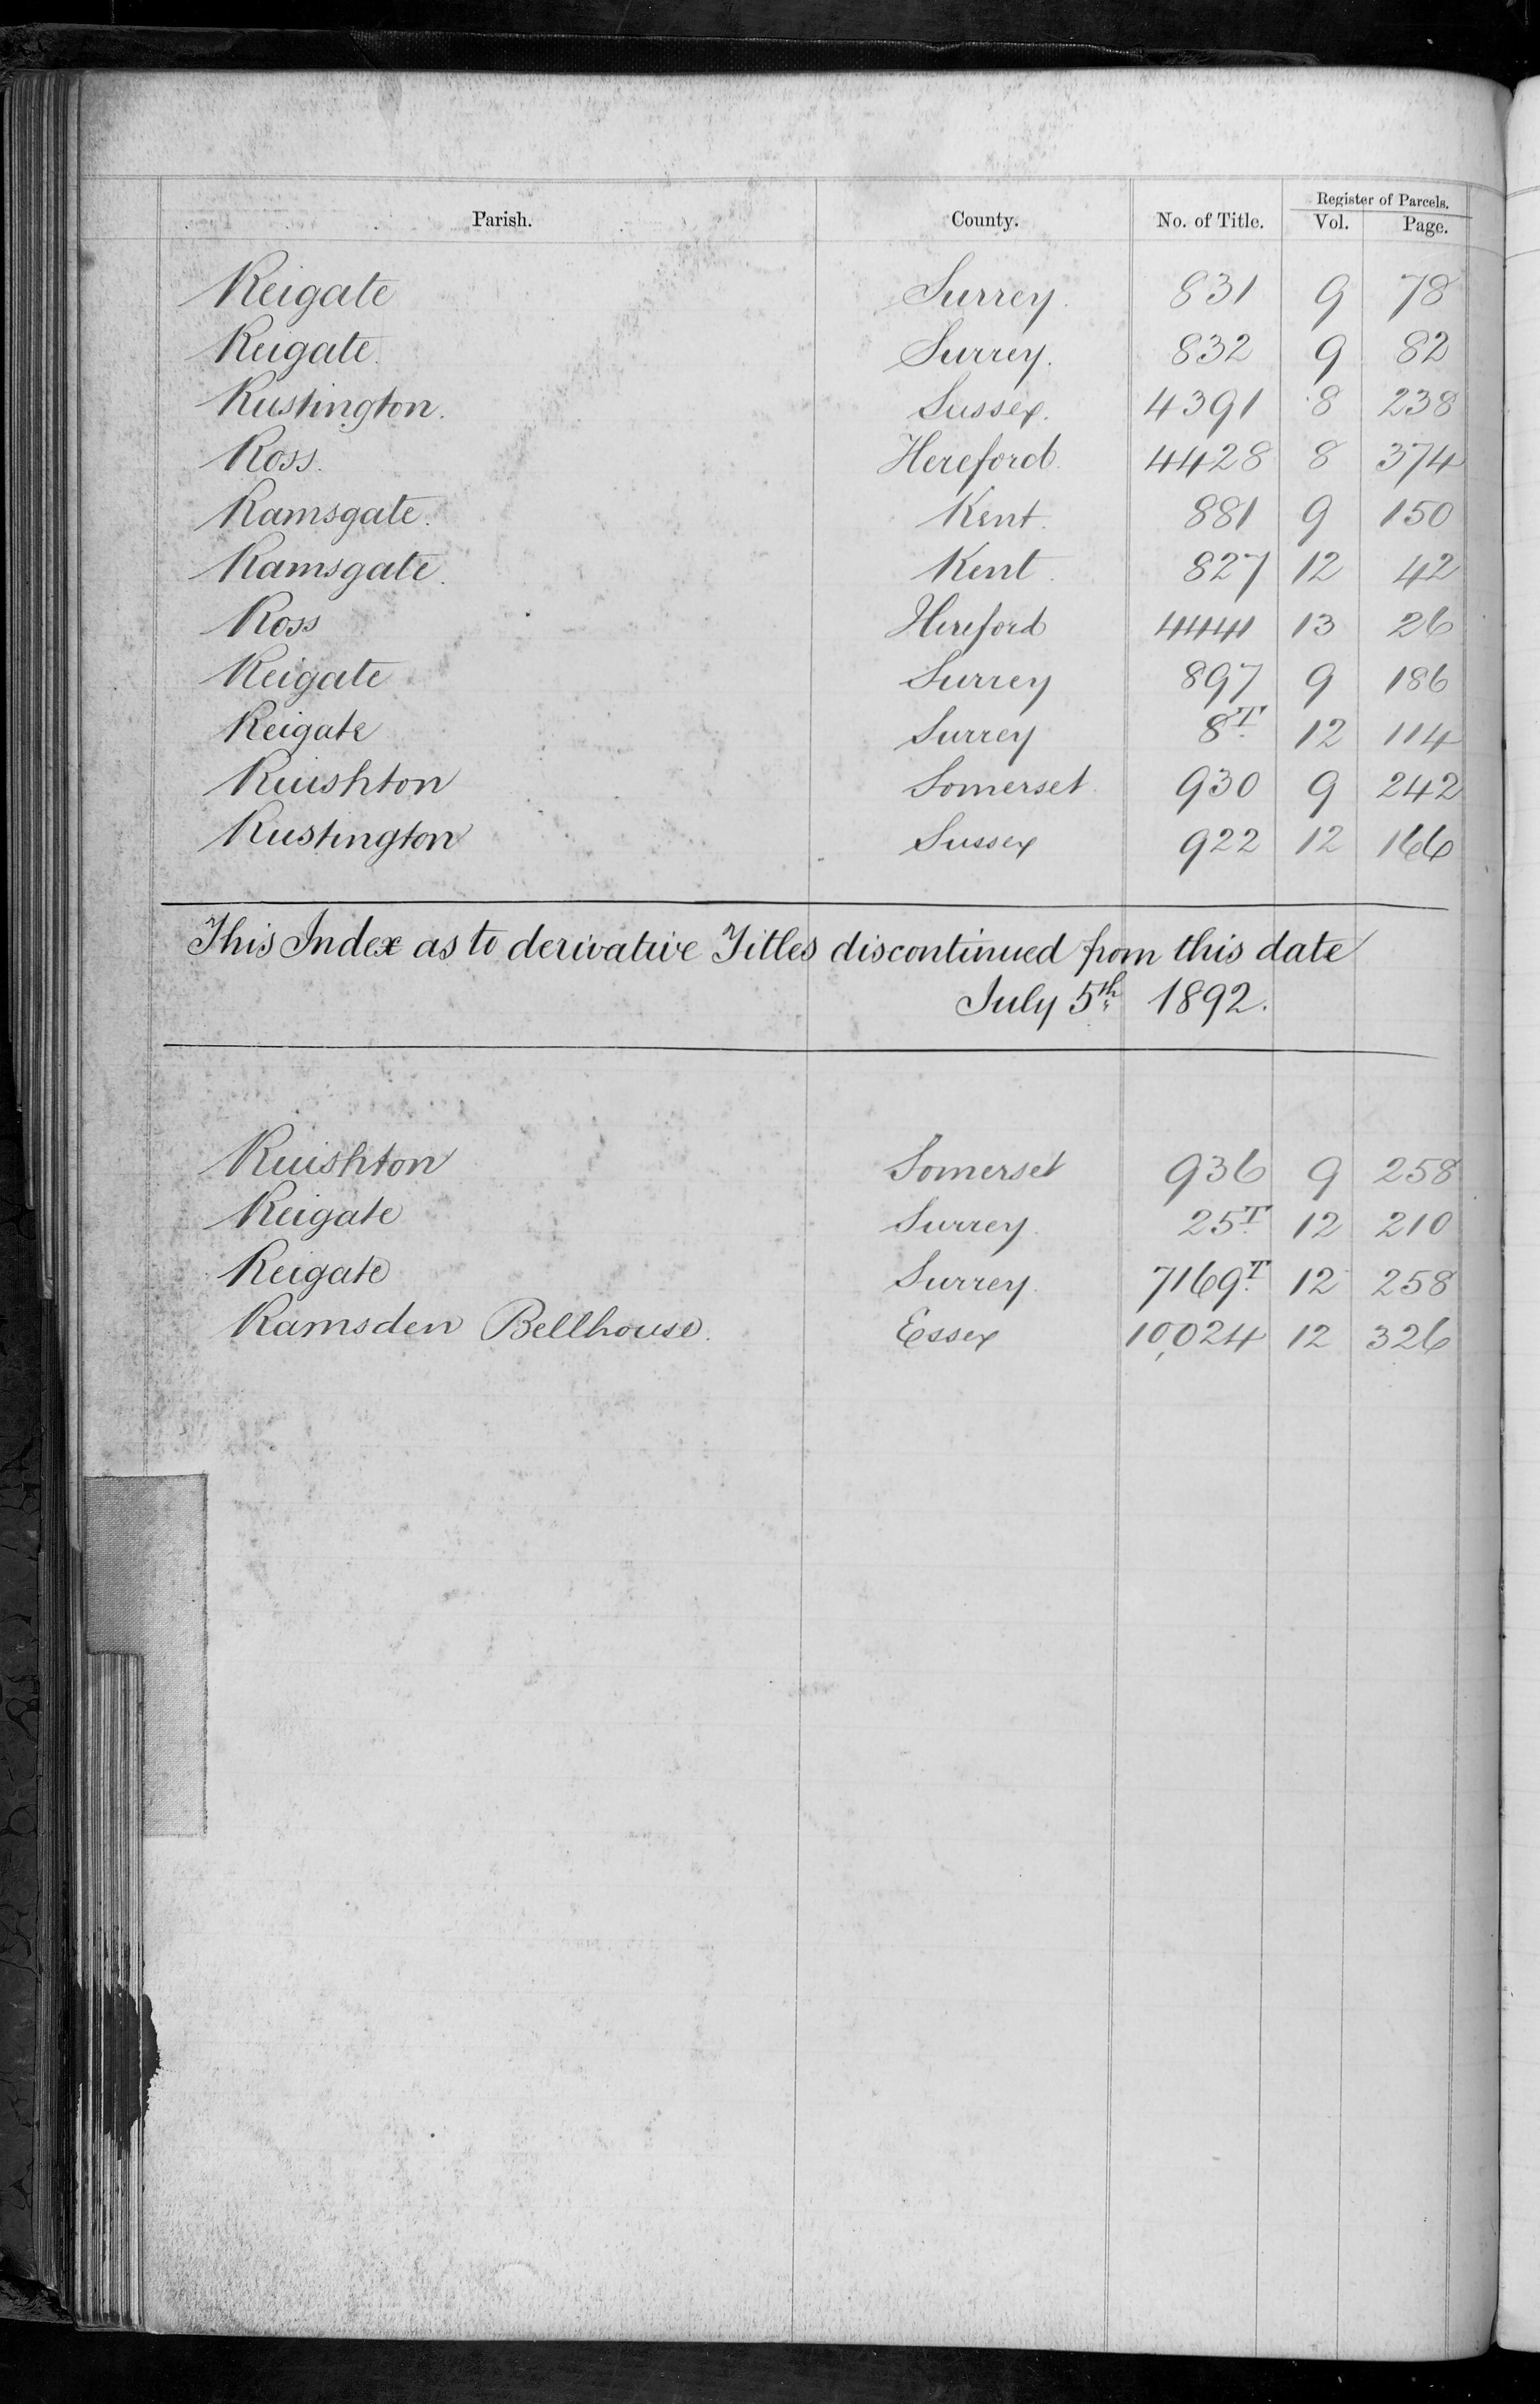 Parish. County. No. of Title. Register of Parcels.
Vol. Page.
Reigate Surrey. 831 9 78
Reigate. Surrey. 832 9 82
Rustington. Sussex. 4391 8 238
Ross. Hereford. 4428 8 374
Ramsgate. Kent. 881 9 150
Ramsgate. Kent. 827 12 42
Ross Hereford 4441 13 26
Reigate Surrey 897 9 186
Reigate Surrey 8T. 12 114
Ruishton Somerset. 930 9 242
Rustington Sussex 922 12 166
This Index as to derivative Titles discontinued from this date
July 5th 1892.
Ruishton Somerset 936 9 258
Reigate Surrey. 25T. 12 210
Reigate Surrey. 7169T. 12 258
Ramsden Bellhouse. Essex 10,024 12 326